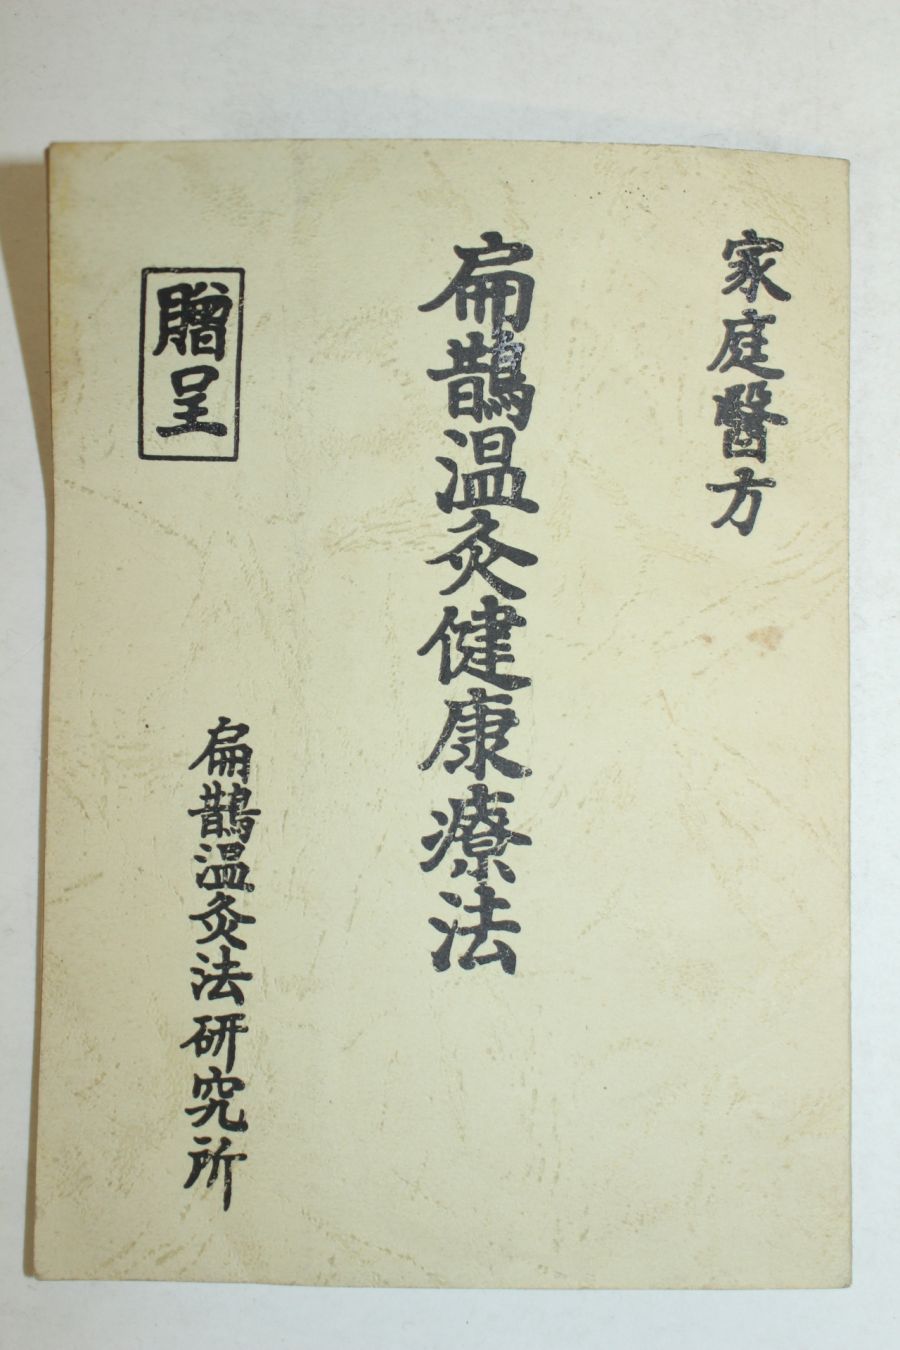 家庭醫方
扁鵲温灸健康療法
贈呈
扁鵲温灸法研究所